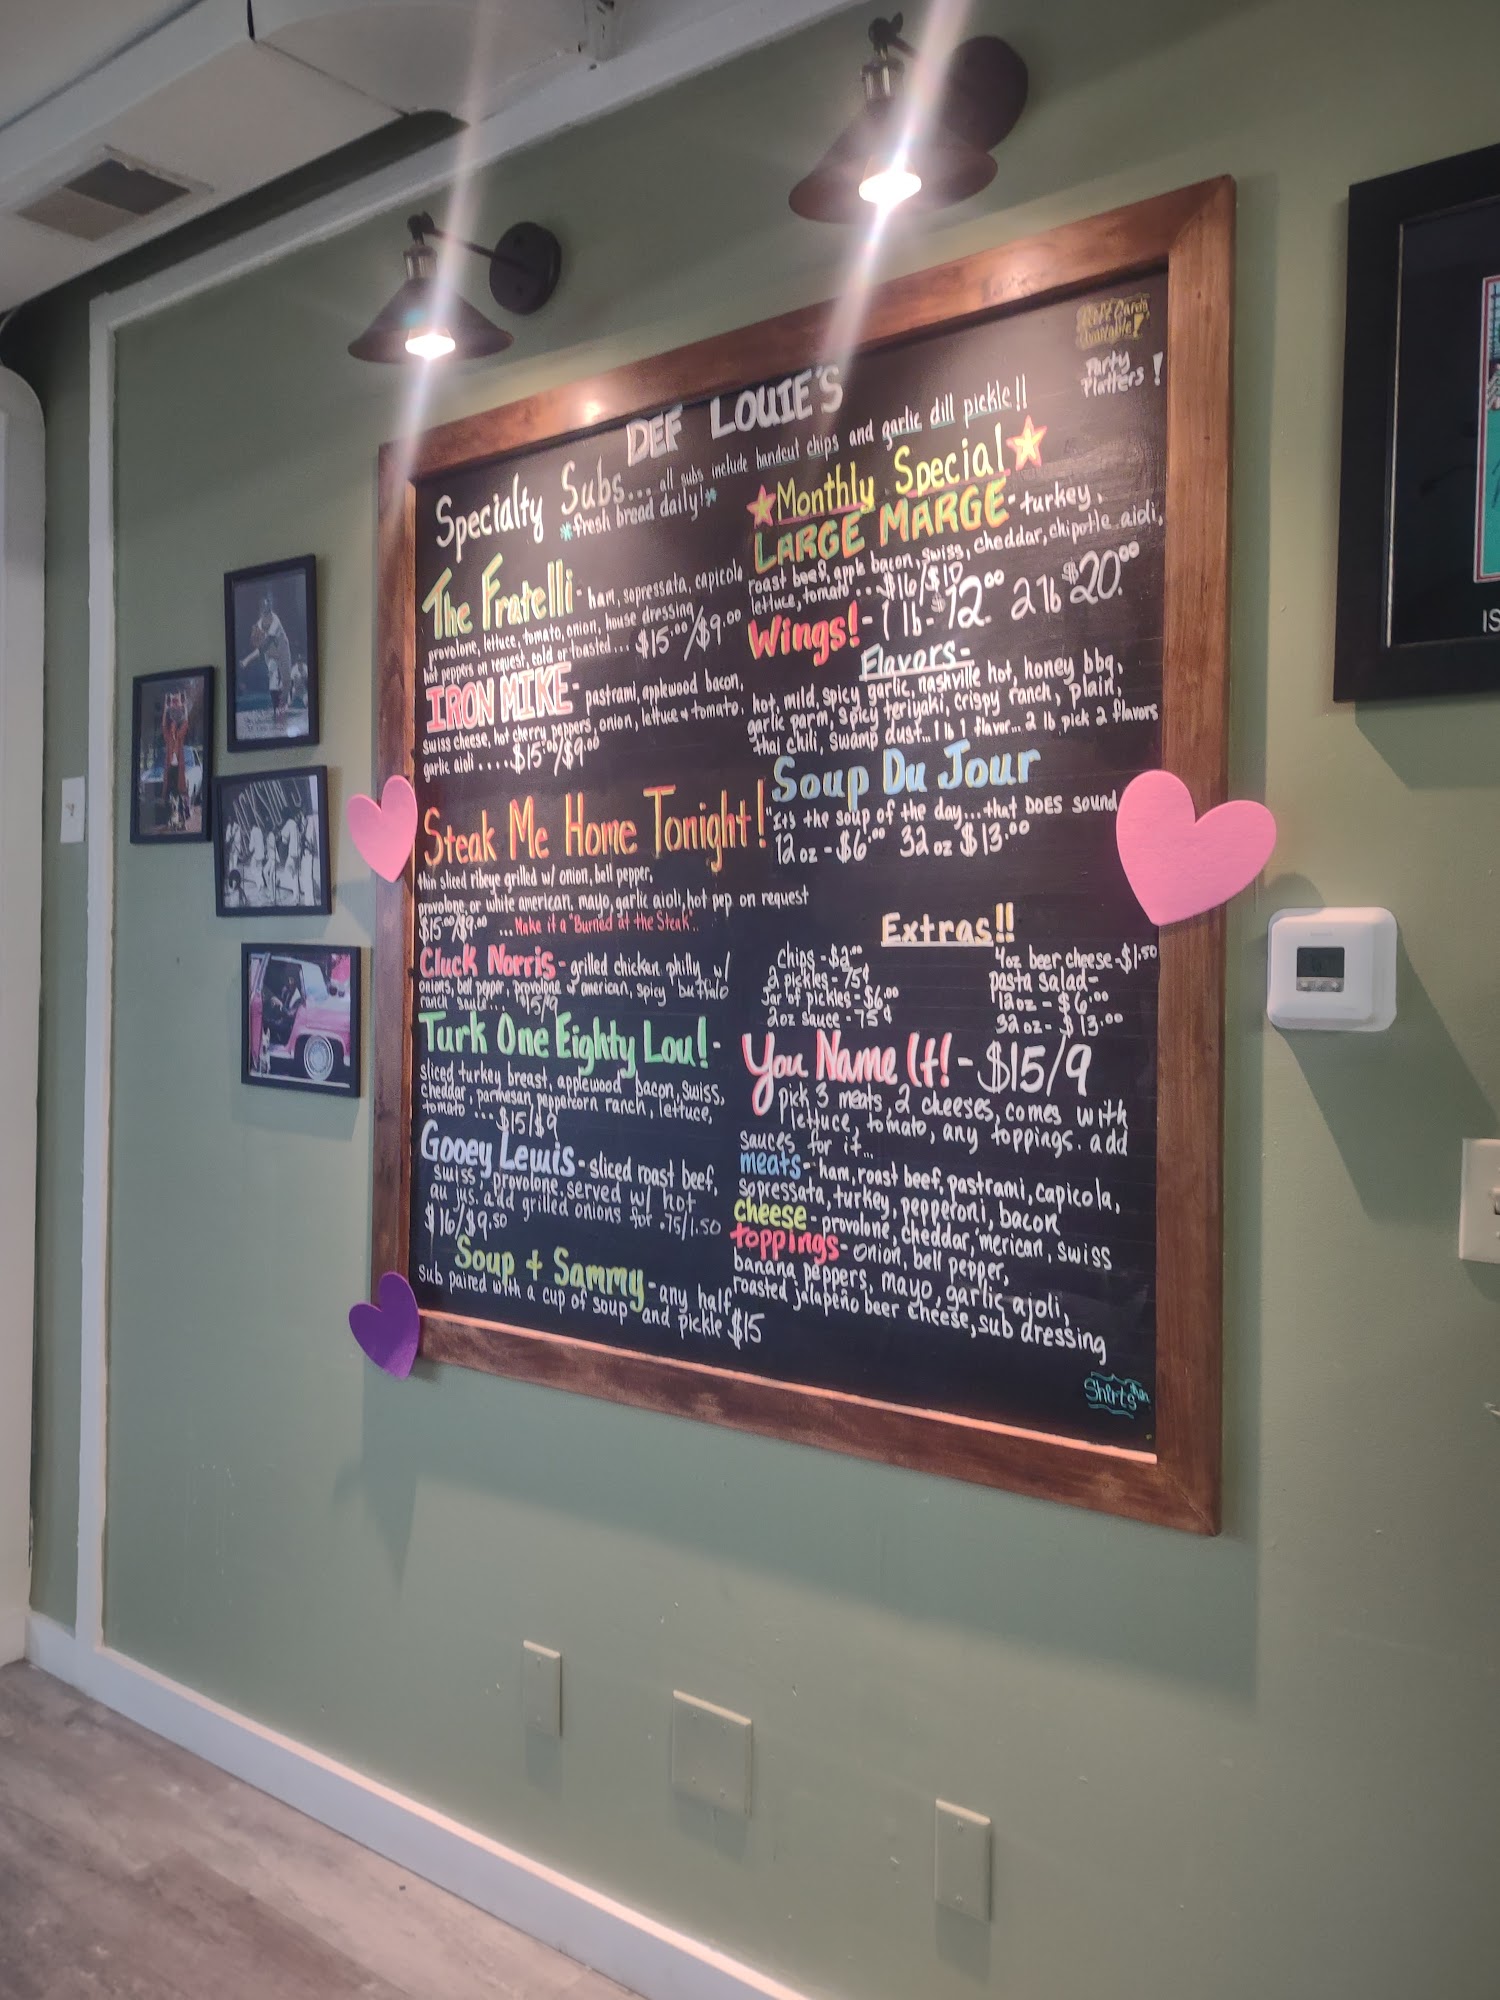 DEF LOUIE'S
Party
Platters!
Specialty Subs... all subs include handcut chips and garlic dill pickle!!
*fresh bread daily!*
The Fratelli - ham, sopressata, capicola
provolone, lettuce, tomato, onion, house dressing
hot peppers on request, cold or toasted... $15.00/$9.00
IRON MIKE - pastrami, applewood bacon,
swiss cheese, hot cherry peppers, onion, lettuce + tomato,
garlic aioli .... $15.00/$9.00
Steak Me Home Tonight!
thin sliced ribeye grilled w/ onion, bell pepper,
provolone or white american, mayo, garlic aioli, hot pep on request
$15.00/$9.00 ...Make it a "Burned at the Steak"..
Cluck Norris - grilled chicken philly w/
onions, bell pepper, provolone + american, spicy buffalo
ranch sauce... $15/9
Turk One Eighty Lou! -
sliced turkey breast, applewood bacon, swiss,
cheddar, parmesan peppercorn ranch, lettuce,
tomato ... $15/$9
Gooey Lewis - sliced roast beef,
swiss, provolone, served w/ hot
au jus. add grilled onions for .75/1.50
$16/$9.50
Soup + Sammy - any half
sub paired with a cup of soup and pickle $15
Monthly Special
LARGE MARGE - turkey,
roast beef, apple bacon, swiss, cheddar, chipotle aioli,
lettuce, tomato... $16/$10
Wings! - 1 lb - $12.00 2 lb $20.00
Flavors -
hot, mild, spicy garlic, nashville hot, honey bbq,
garlic parm, spicy teriyaki, crispy ranch, plain,
thai chili, swamp dust... 1 lb 1 flavor... 2 lb pick 2 flavors
Soup Du Jour
"It's the soup of the day... that DOES sound
12 oz - $6.00 32 oz $13.00
Extras!!
Chips - $2.00
2 pickles - 75¢
Jar of pickles - $6.00
2oz sauce - 75¢
4oz beer cheese - $1.50
pasta salad -
12oz - $6.00
32oz - $13.00
You Name It! - $15/9
pick 3 meats, 2 cheeses, comes with
lettuce, tomato, any toppings. add
sauces for it...
meats - ham, roast beef, pastrami, capicola,
sopressata, turkey, pepperoni, bacon
cheese - provolone, cheddar, 'merican, swiss
toppings - onion, bell pepper,
banana peppers, mayo, garlic aioli,
roasted jalapeño beer cheese, sub dressing
Shirts
IS